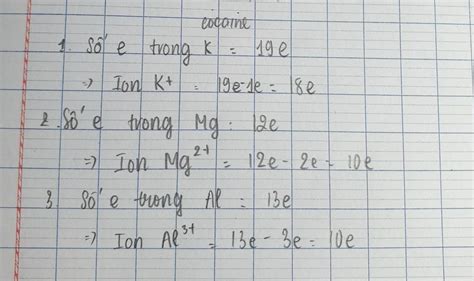 cocaine
1. Số e trong K = 19e
=> Ion K+ = 19e-1e = 18e
2. Số e trong Mg: 12e
=> Ion Mg²⁺ = 12e - 2e = 10e
3. Số e trong Al = 13e
=> Ion Al³⁺ = 13e - 3e = 10e